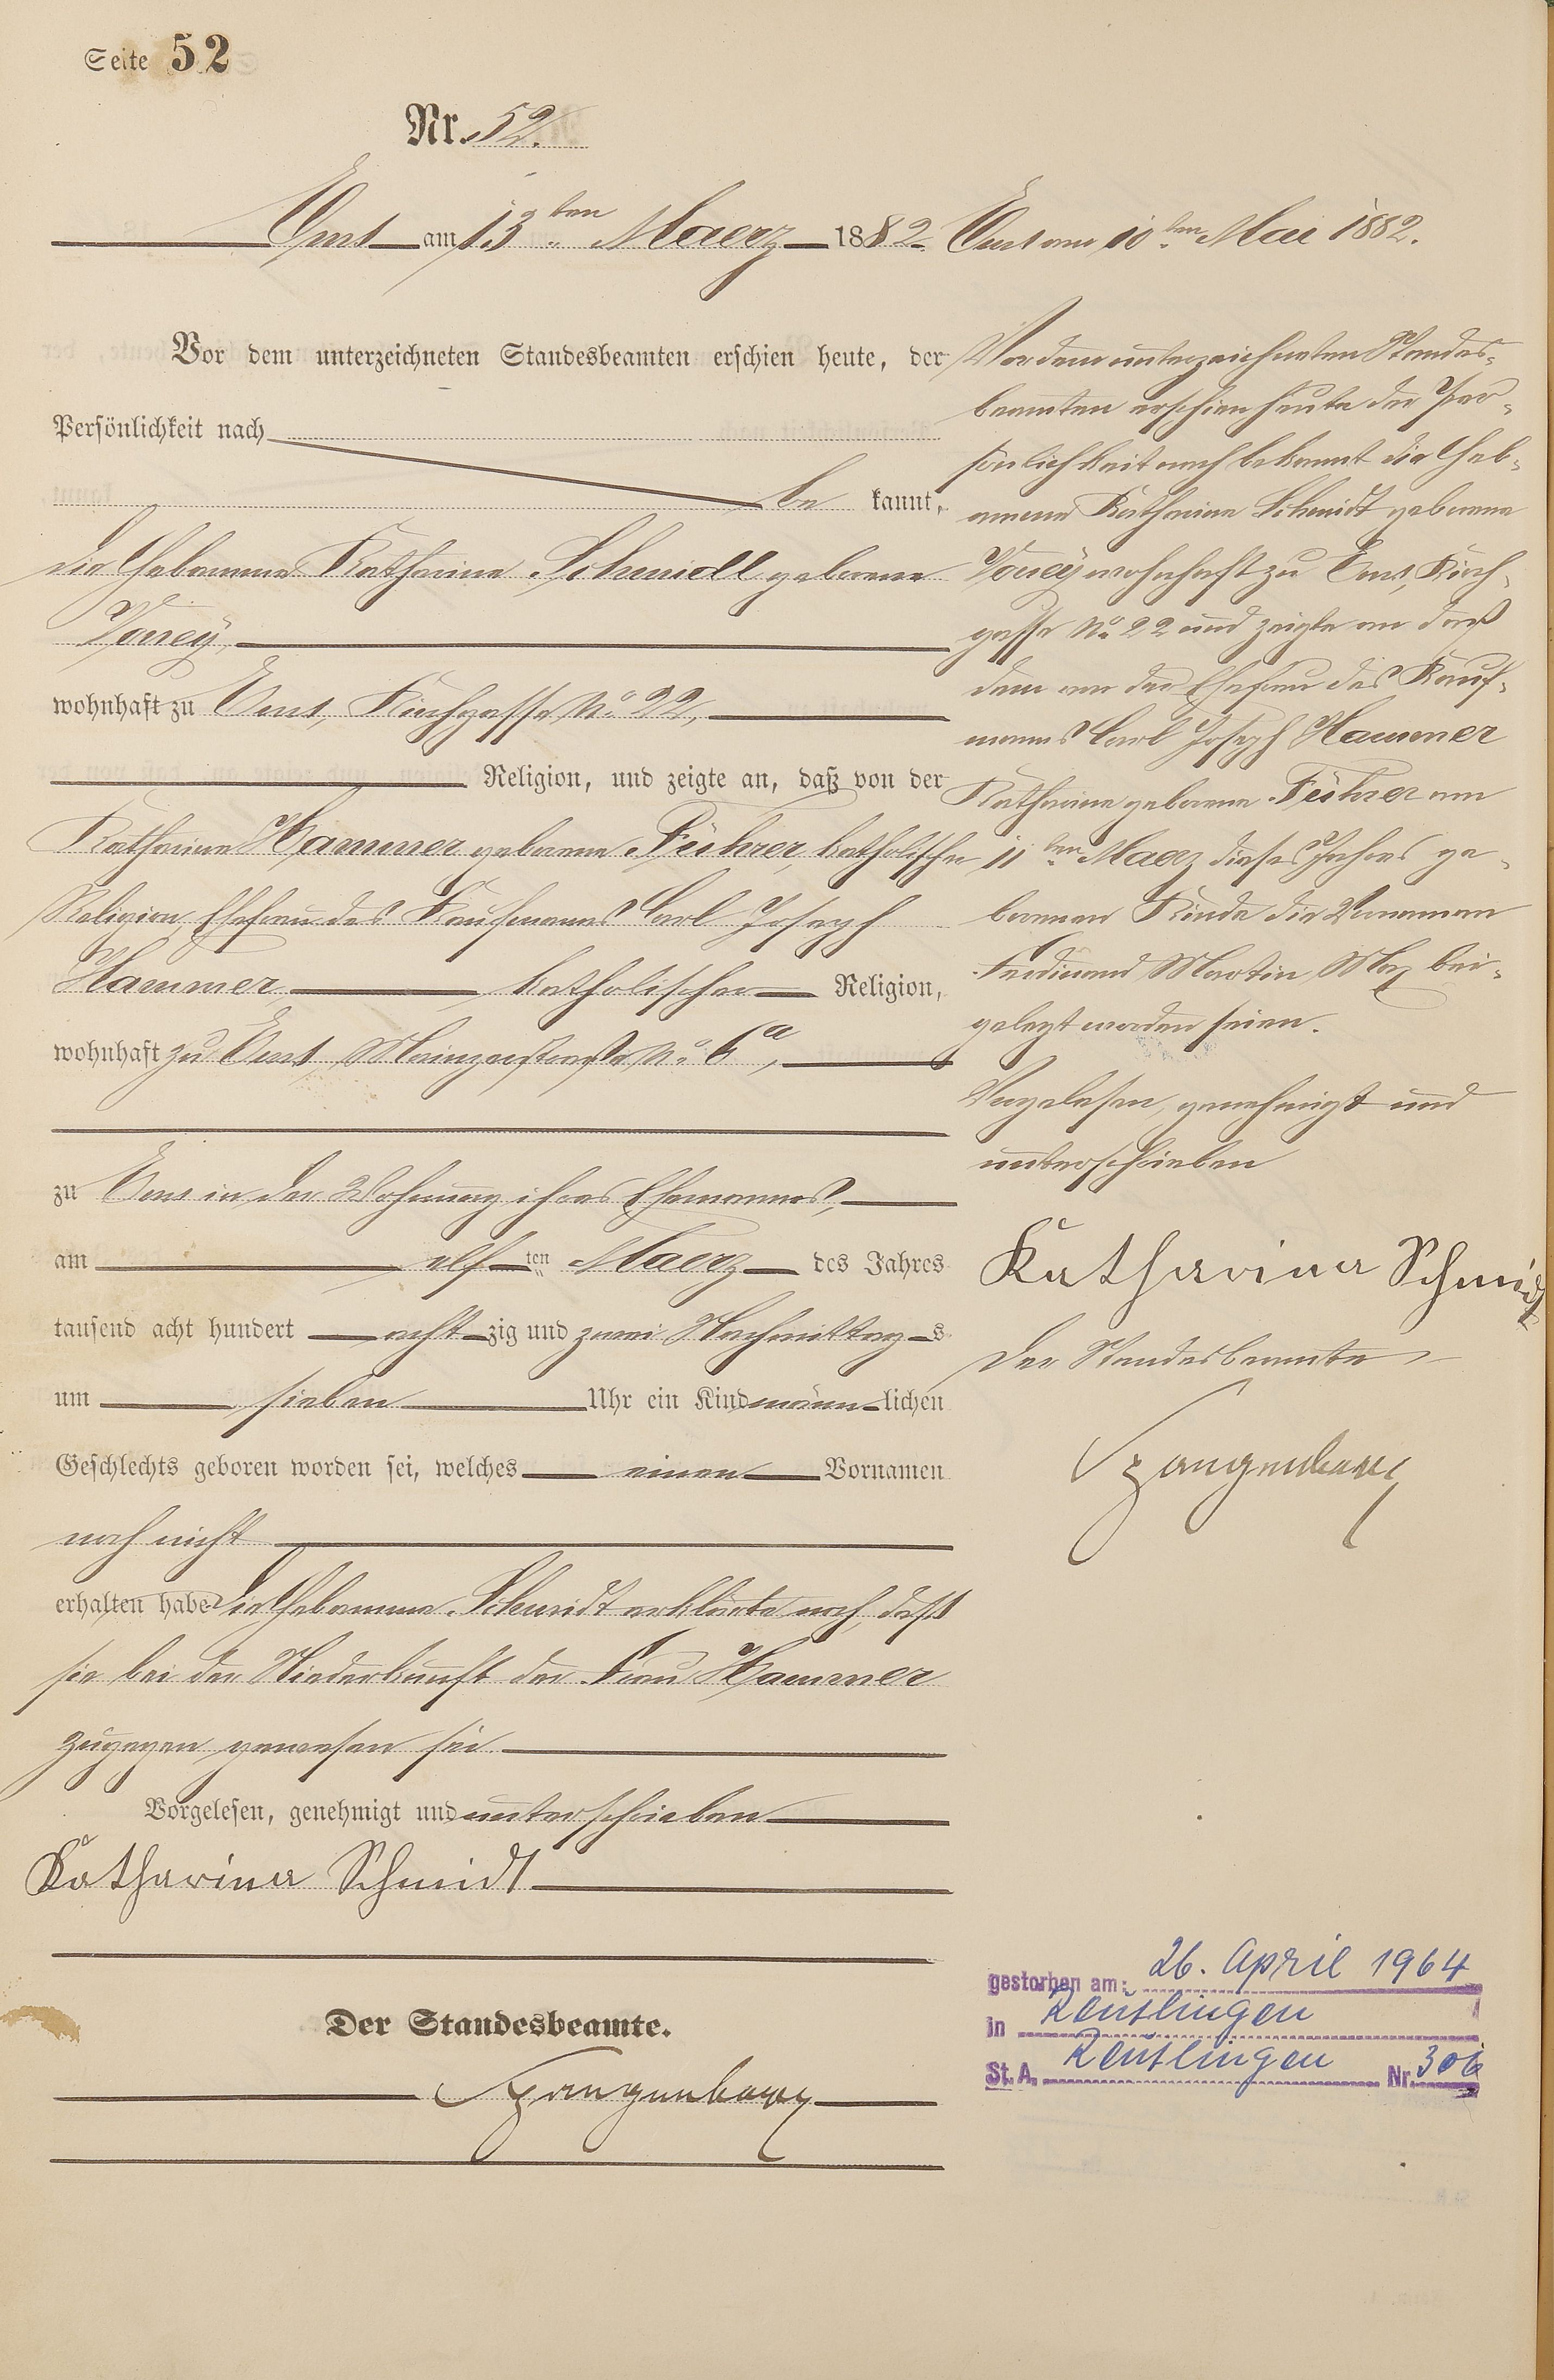 Seite 52
Nr. 52.
Ems am 13ten Maerz 1882.
Vor dem unterzeichneten Standesbeamten erschien heute, der
Persönlichkeit nach
be kannt,
die Hebamme Katharina Schmidt geborene
wohnhaft zu Ems, Kirchgasse No. 22,
Religion, und zeigte an, daß von der
Katharina Hammer geborene Führer, katholischer
Religion, Ehefrau des Kaufmanns Carl Joseph
Hammer katholischer Religion,
wohnhaft zu Ems, Mainzerstraße No. 6a,
zu Ems in der Wohnung ihres Ehemannes,
am elften Maerz des Jahres
tausend acht hundert acht zig und zwei Nachmittag s
um sieben Uhr ein Kind männ lichen
Geschlechts geboren worden sei, welches einen Vornamen
noch nicht
erhalten habe Die Hebamme Schmidt erklärte noch, daß
sie bei der Niederkunft der Frau Hammer
zugegen gewesen sei
Vorgelesen, genehmigt und unterschrieben
Katharina Schmidt
Der Standesbeamte.
Ems am 10ten Mai 1882.
Vor dem unterzeichneten Standes-
beamten erschien heute der Per-
sönlichkeit nach bekannt die Heb-
amme Katharina Schmidt geborene
wohnhaft zu Ems, Kirch-
gasse No. 22 und zeigte an daß
dem von der Ehefrau des Kauf-
manns Carl Joseph Hammer
Katharina geborene Führer am
11ten Maerz dieses Jahres ge-
borenen Kinde die Vornamen
Ferdinand Martin Max bei-
gelegt worden seien.
Vorgelesen, genehmigt und
unterschrieben
Katharina Schmidt
Der Standesbeamte
gestorben am: 26. April 1964
in Reutlingen
St. A. Reutlingen Nr. 306